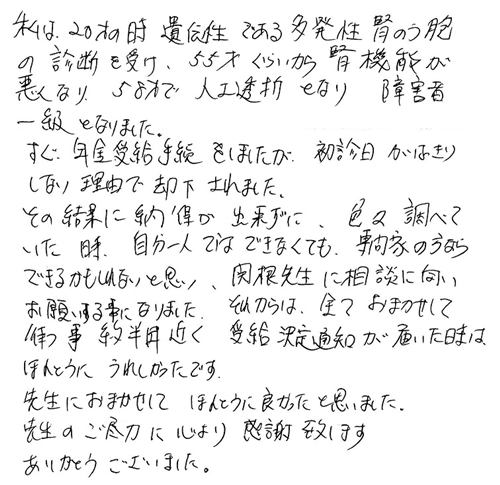 私は、20才の時 遺伝性である多発性腎のう胞
の診断を受け、55才くらいから腎機能が
悪くなり、58才で人工透析となり 障害者
一級となりました。
すぐ、年金受給手続をしましたが、初診日がはっきり
しない理由で却下されました。
その結果に納得が出来ずに、色々調べて
いた時、自分一人ではできなくても、専門家の方なら
できるかもしれないと思い、関根先生に相談に伺い
お願いする事になりました。それからは、全ておまかせして
待つ事約半年近く 受給決定通知が届いた時は
ほんとうにうれしかったです。
先生におまかせして ほんとうに良かったと思いました。
先生のご尽力に心より感謝致します
ありがとうございました。